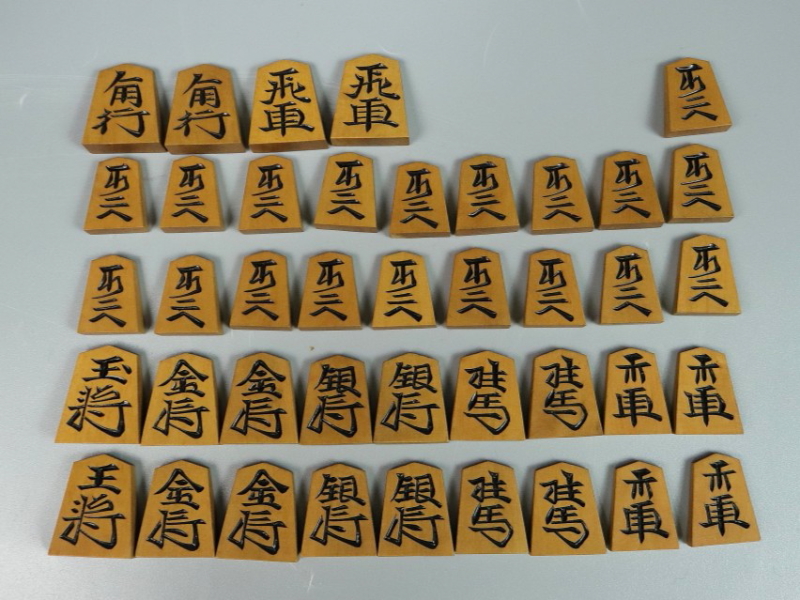 角行 角行 飛車 飛車 歩兵
歩兵 歩兵 歩兵 歩兵 歩兵 歩兵 歩兵 歩兵 歩兵
歩兵 歩兵 歩兵 歩兵 歩兵 歩兵 歩兵 歩兵 歩兵
玉将 金将 金将 銀将 銀将 桂馬 桂馬 香車 香車
王将 金将 金将 銀将 銀将 桂馬 桂馬 香車 香車